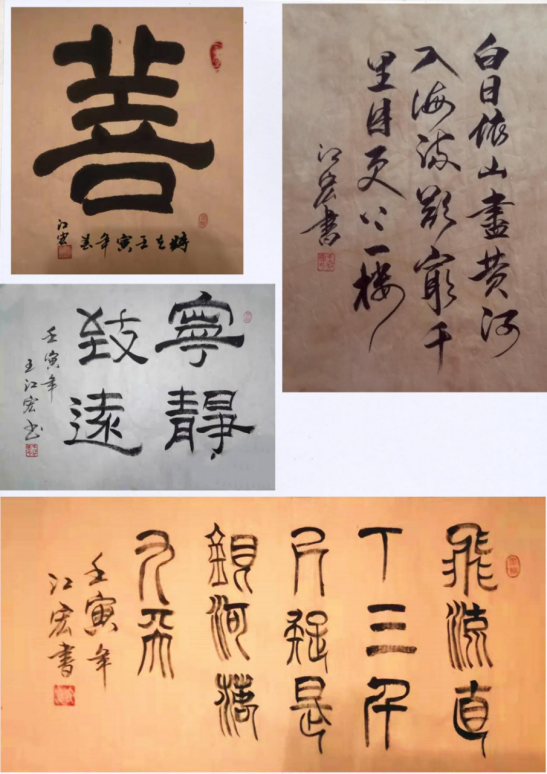 善
時在壬寅年
江宏
白日依山盡黄河
入海流欲窮千
里目更上一樓
江宏書
寧靜
致遠
壬寅年
王江宏书
飛流直
下三千
尺疑是
銀河落
九天
壬寅年
江宏書